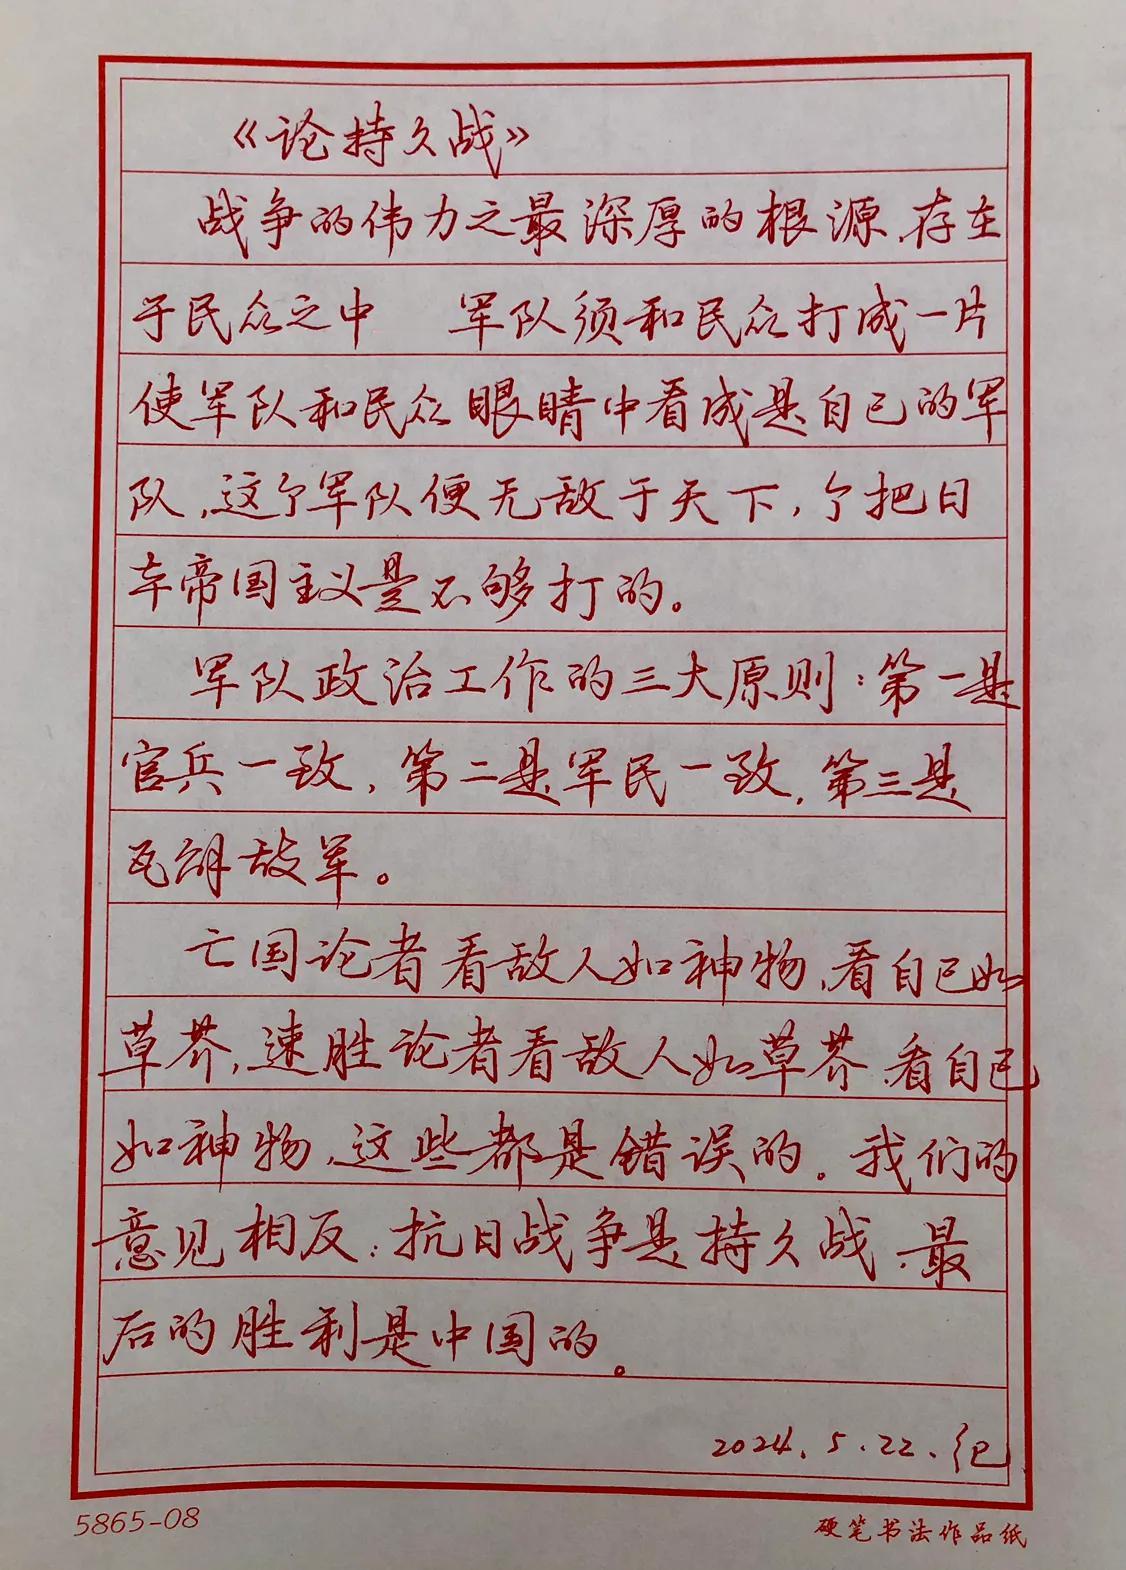 《论持久战》
战争的伟力之最深厚的根源、存在
于民众之中 军队须和民众打成一片
使军队和民众眼睛中看成是自己的军
队，这个军队便无敌于天下，个把日
本帝国主义是不够打的。
军队政治工作的三大原则：第一是
官兵一致，第二是军民一致，第三是
瓦解敌军。
亡国论者看敌人如神物、看自己如
草芥，速胜论者看敌人如草芥、看自己
如神物，这些都是错误的。我们的
意见相反：抗日战争是持久战、最
后的胜利是中国的。
2024.5.22.
5865-08
硬笔书法作品纸